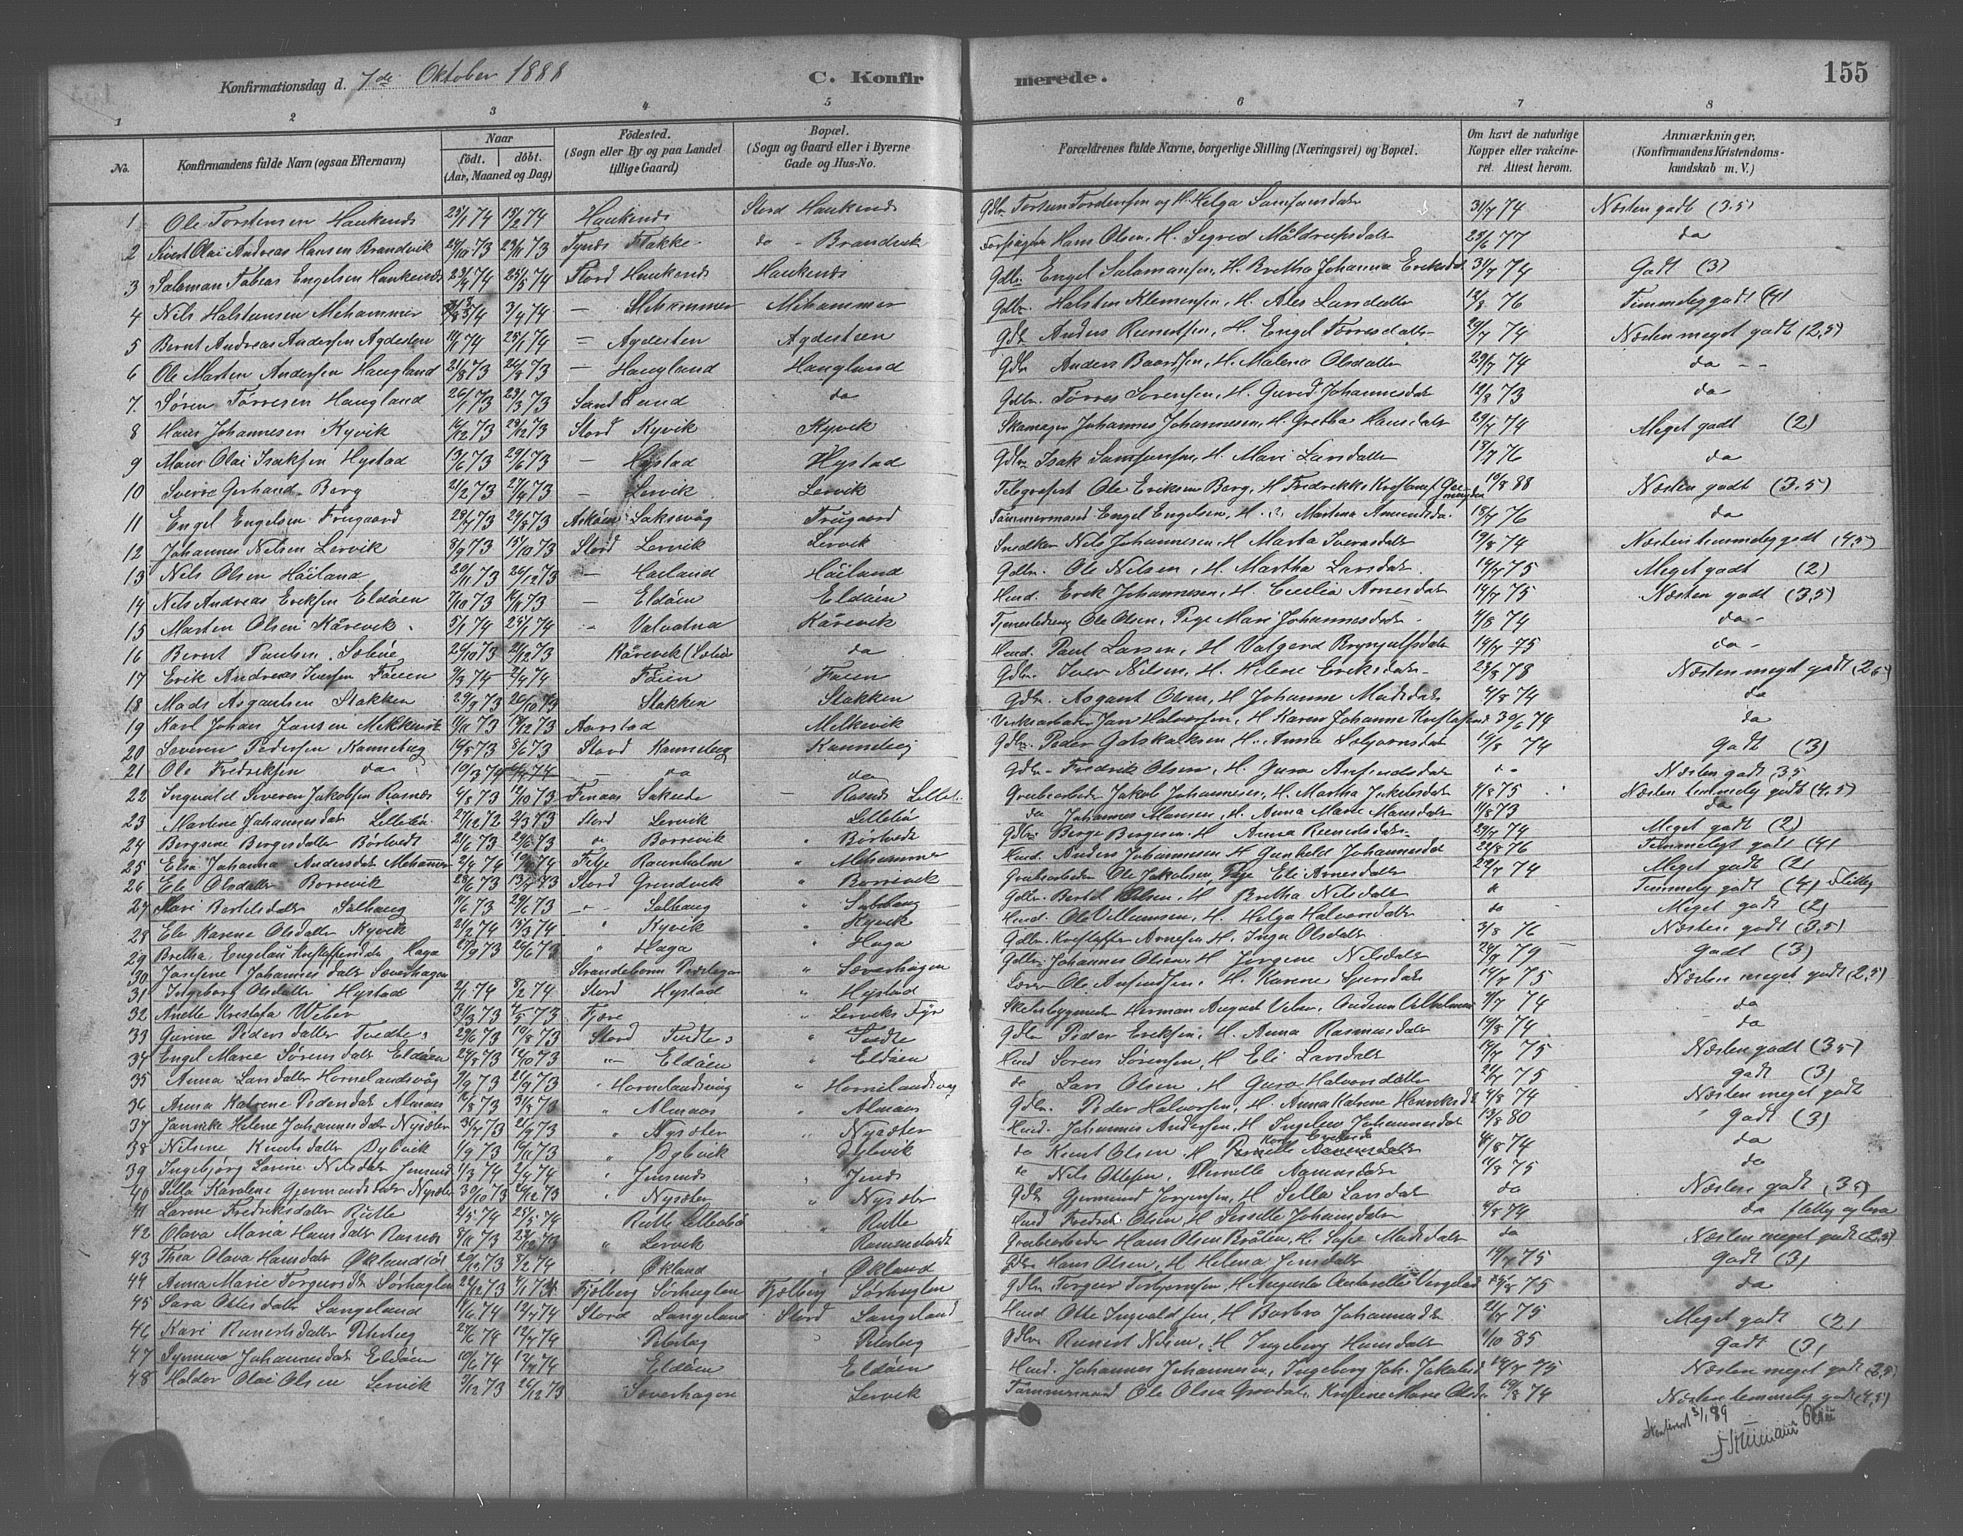 Konfirmationsdag d. 7de Oktober 1888 C. Konfir merede. 155
1 2 3 4 5 6 7 8
No. Konfirmandens fulde Navn (ogsaa Efternavn) Naar födt. döbt. (Aar, Maaned og Dag) Födested. (Sogn eller By og paa Landet tillige Gaard) Bopæl. (Sogn og Gaard eller i Byerne Gade og Hus-No. Forældrenes fulde Navne, borgerlige Stilling (Næringsvei) og Bopæl. Om havt de naturlige Kopper eller vakcineret. Attest herom. Anmærkninger. (Konfirmandens Kristendomskundskab m. V.)
1 Ole Torstensen Haukenæs 25/1 74 15/2 74 Haukenæs Stord Haukenæs Gdbr. Torsten Tordensen og H. Helga Samsonsdatr 31/7 74 Næsten godt (3.5)
2 Sivert Olai Andreas Hansen Brandvik 73 73 Flakke do - Brandvik Hans Olsen, H. Sigrid 28/6 77 do
3 Salamon Tobias Engelsen Haukenæs 74 25/5 74 Stord Haukenæs Haukenæs Gdbr. Engel Salamonsen, H. Bretha Johanna Eriksdt. 31/7 74 Godt (3)
4 Nils Halstensen Mehammer 74 3/4 74 — Mehammer Mehammer Gdbr. Halsten Klemensen, H. Ales Larsdatter 12/8 76 Temmelig godt (4)
5 Bernt Andreas Andersen Agdesten 74 25/1 74 — Agdesten Agdesteen Gdb. Anders Runutsen, H. Engel Torresdatter 29/7 74 Næsten meget godt (2,5)
6 Ole Martin Andersen Haugland 21/8 73 73 — Haugland Haugland Gdbr Anders Baardsen, H. Malena Olsdatter 29/7 74 do - -
7. Søren Torresen Haugland 26/1 73 23/3 73 Sand Sand do Gdbr. Torres Sorensen, H. Gurid Johannesdatr 12/8 73 do
8 Hans Johannesen Kyvik 73 29/12 73 Stord Kyvik Kyvik Skomager Johannes Johannesen, H. Gretha Hansdatr 29/7 74 Meget godt (2)
9 Mons Olai Isaksen Hystad 13/6 73 29/6 73 — Hystad Hystad Gdbr Isak Samsonsen, H. Mari Larsdatter 18/7 76 do
10 Sverre Gerhand Berg 2/2 73 27/4 73 - Lervik Lervik Telegrafist Ole Eriksen Berg, H Fredrikke 10/8 88 Næsten godt (3,5)
11 Engel Engelsen Frugaard 28/7 73 24/8 73 Askøen Laksevåg Frugaard Tømmermand Engel Engelsen, H. Martina 18/7 76 do
12 Johannes Nilsen Lervik 8/9 73 15/10 73 Stord Lervik Lervik Snedker Nils Johannesen, H. Marta Iversdatr 19/8 74 Næsten temmelig godt (4,5)
13 Nils Olsen Høiland 20/11 73 26/12 73 — Høiland Høiland Gdbr. Ole Nilsen, H. Martha Larsdatr. 14/7 75 Meget godt (2)
14 Nils Andreas Eriksen Eldøen 7/10 73 73 — Eldøen Eldøen Husd. Erik Johannesen, H. Cecilia Arnesdatr 14/7 75 Næsten godt (3,5)
15 Marten Olsen Kårevik 5/1 74 25/1 74 - Valvatna Kårevik Ole Olsen, Pige Mari Johannesdatr 4/8 74 do -
16 Bernt Paulsen Solene 29/10 73 73 Kårevik (Solene do Husd. Paul Larsen, H. Valgerd Brynjulfsdatr 14/7 75 do -
17 Erik Andreas Iversen Føien 74 Føien Føien Gdbr. Iver Nilsen, H. Helene Eriksdatr 23/8 78 Næsten meget godt (2,5)
18 Mads Asgautsen Stokken 29/9 73 26/10 73 Stokken Stokken Gdbr. Asgaut Olsen, H Johanne Madsdatr 4/8 74 do
19 Karl Johan Jansen Mekkevik 73 73 Aarstad Melkevik Jan Halvorsen, H. Karen Johanne 30/6 74 do
20 Severen Pedersen Kannebeg 14/5 73 8/6 73 Stord Kannebeg Kannebeg Gdbr. Peder Gotskalksen, H. Anna 14/8 74 Godt (3)
21 Ole Fredriksen do 10/3 74 74 - do do Gdbr - Fredrik Olsen, H. Gura do Næsten godt 3,5
22 Ingvald Severen Jakobsen Rasnæs 4/8 73 12/10 73 Finaas Sakude - Rasnæs Lilleb. Grubearbeider Jakob Johannesen, H. Martha Jakobsdatr 4/8 75 Næsten temmelig godt (4,5)
23 Martine Johannesdatr Lillebø 27/12 72 2/3 73 Stord Lervik Lillebø do Johannes Hansen, H. Anna Marie Hansdatr 11/8 73 do
24 Bergsine Bergesdatter Børtvedt 2/6 73 29/6 73 " Borrevik " Børtvedt Gdbr. Berge Bergesen, H. Anna Runutsdatr 29/7 74 Meget godt (2)
25 Elsa Johanna Andersdatr Mehamer 74 74 Fitje Ravnholm " Mehammer Husd. Anders Johannesen H. Gunhild Johannesdat 22/8 76 Temmeligt godt (4)
26 Eli Olsdatter Borrevik 28/6 73 13/7 73 Stord Grindvik " Borrevik Grubearbeider Ole Jakobsen, Pige Eli Arnesdatr 22/7 74 Meget godt (2)
27 Mari Bertelsdatr Solhaug 11/6 73 29/6 73 " Solhaug " Solhaug Gdbr. Bertel Olsen, H Bretha Nilsdatr do Temmelig godt (4) flittig
28 Eli Karene Olsdatter Kyvik 2/2 74 15/3 74 " Kyvik " Kyvik Husd. Ole Villumsen, H. Helga Halvorsdatr do Meget godt (2)
29 Bretha Engelau Haga 73 73 " Haga " Haga Gdbr. Arnesen H. Inga Olsdatr. 3/8 76 Næsten godt (3,5)
30 Josefine Johannesdatr Soverhagen " Soverhagen Johannes Olsen, H. Jorgene Nilsdatr 79 Godt (3)
31 Ingeborg Olsdatter Hystad 2/1 74 8/2 74 Stord Hystad " Hystad Ole H. Karene 14/7 75 Næsten meget godt (2,5)
32 Anette Krestofa Weber 31/3 73 73 Fjære " Lerviks Fyr Herman August 9/7 74 do
33 Gurine Pedersdatter Tvedte 29/6 73 10/8 73 Stord Tvedte " Tvedte Gdbr. Peder Eriksen, H. Anna Rasmusdatr 14/8 74 do
34 Engel Marie Sørensdatr Eldøen 73 12/10 73 " Eldøen " Eldøen Husd Soren Sørensen, H Eli Larsdatr 14/7 75 Næsten godt (3,5)
35 Anna Larsdatter Hornelandsvåg 73 21/9 73 " Hornelandsvåg " Hornelandsvåg do Lars Olsen, H Gura Halvorsdatter 21/7 75 godt (3)
36 Anna Katrine Pedersdatr Almaas 12/8 73 31/8 73 " Almaas " Almaas Gdbr. Peder Halvorsen, H. Anna Katrine Henriksdt 4/8 74 Næsten meget godt
37 Jannikke Helene Johannesdatr Nysæter 31/7 73 21/9 73 " Nysæter " Nysæter Husd. Johannes Andersen, H. Ingeleiv Johannesdat 13/8 80 Godt (3)
38 Nilsine Knutsdatter Dybvik 1/9 73 73 " Dybvik " Dybvik do Knut Olsen, H 4/8 74 do
39 Ingebjørg Larine Nilsdatr 1/3 74 2/4 74 " Jensnæs " Nils Ottesen, Pernille 11/8 75 do
40 Sella Karolene Gjermundsdatr Nysæter 30/10 73 26/12 73 " Nysæter " Nysæter Gdbr Germund Jorgensen, H. Sella Larsdatr do Næsten godt (3,5)
41 Larene Fredriksdatter Rutle 2/5 74 25/5 74 Rutle Lillebø " Rutle Husd Fredrik Olsen, H. Sesselle Johansdatr 4/8 74 do flittig og
42 Olava Maria Hansdatr Rasnæs 8/11 73 73 " Lervik Grubearbeider Hans Olsen Bråten, H. Madsdatr do Næsten meget godt (2,5)
43 Thea Olava Hansdatr Økland 29/12 73 8/2 74 " Økland " Økland Gdbr. Hans Olsen, H Helena Jensdatr 14/7 75 Godt (3)
44 Anna Marie Torgersdtr Sørhuglen 22/12 73 Fjelberg Sørhuglen Fjelberg Sørhuglen Gdbr Torger Torbjornsen, H. Augusta 75 do
45 Sara Ottesdatter Langeland 17/6 74 12/7 74 Stord Langeland Stord Langeland Husd Otte Ingvaldsen, H Barbro Johannesdtr 21/7 75 Meget godt (2)
46 Kari Runutsdatter Petersbeg 27/6 74 12/7 74 " Petersbeg " Petersbeg Gdbr Runut Nilsen, H. Ingeborg Hansdatr 1/10 85 Godt (3)
47 Synneva Johannesdatr Eldøen 10/6 74 12/7 74 Eldøen Eldøen Husd. Johannes Johannesen, Ingeborg Joh. Jakobsd 14/7 75 Næsten meget godt (2,5)
48 Halder Olai Olsen Lervik 3/12 73 26/12 73 Soverhagen Lervik Tømmermand Ole Olsen Grovdal, Kristene Marie Olsdr 19/8 74 Næsten temmelig godt (4,5)
Konfirmeret 3/1 89